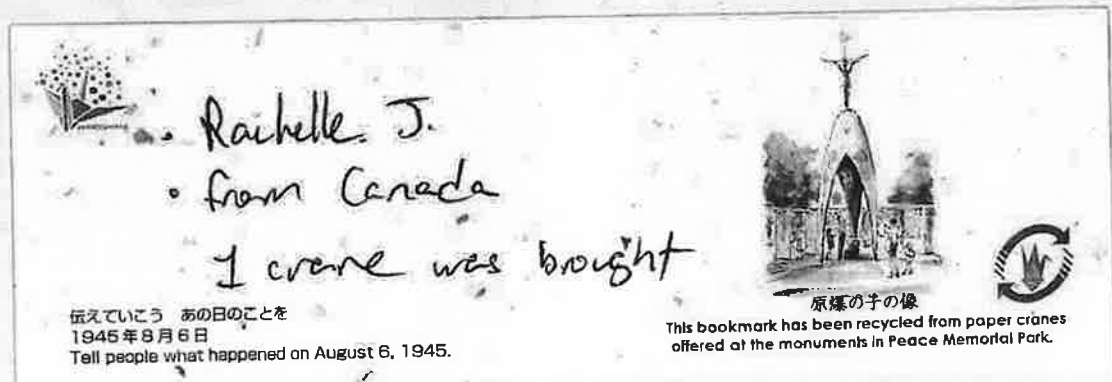 • Rachelle. J.
• from Canada
1 crane was brought
伝えていこう　あの日のことを
1945年8月6日
Tell people what happened on August 6, 1945.
原爆の子の像
This bookmark has been recycled from paper cranes
offered at the monuments in Peace Memorial Park.